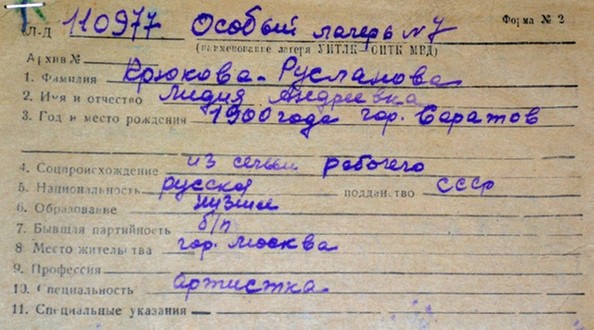 Л-Д 110977. Особый лагерь №7 Форма № 2
(наименование лагеря УИТЛК—ОИТК МВД)
Архив №
1. Фамилия Крюкова-Русланова
2. Имя и отчество Лидия Андреевна
3. Год и место рождения 1900 года гор. Саратов
4. Соцпроисхождение из семьи рабочего
5. Национальность русская подданство СССР
6. Образование низшее
7. Бывшая партийность б/п
8. Место жительства гор. Москва
9. Профессия
10. Специальность артистка
11. Специальные указания